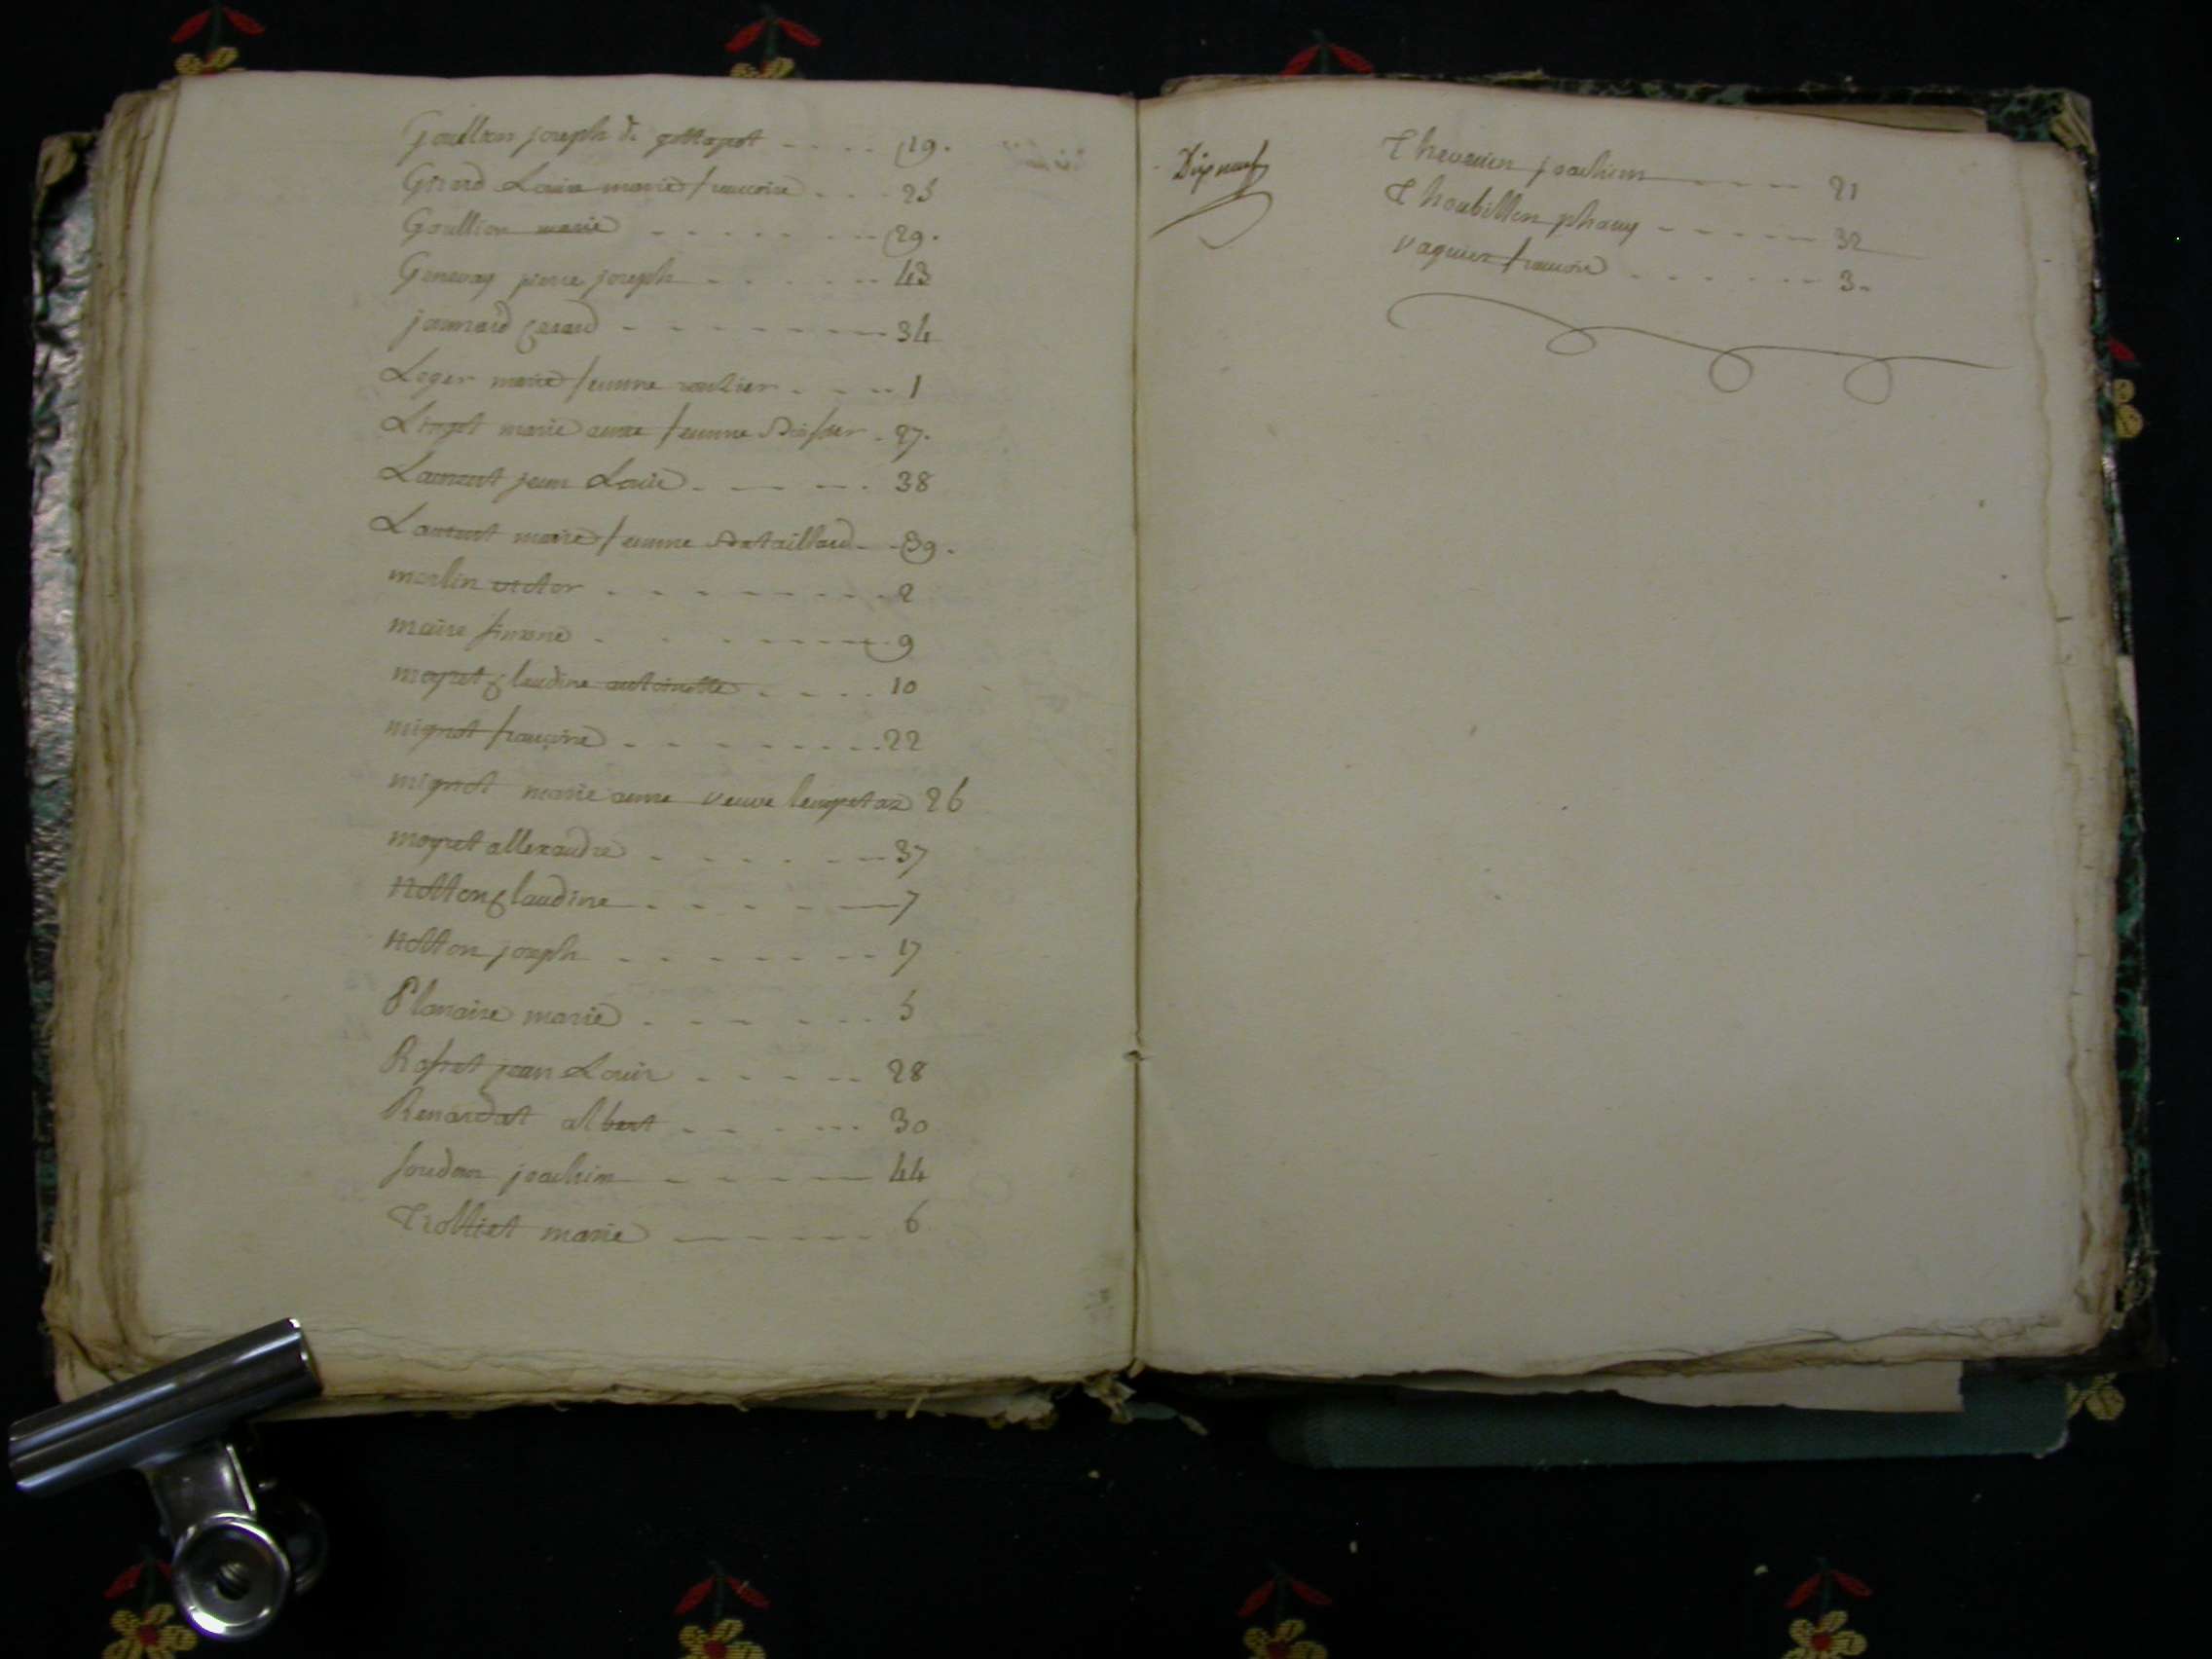 Goullion joseph de - - - - 19.
Girard Louise marie francoise - - - 25
Goullion marie - - - - - - - 29.
Genevay pierre joseph - - - - - - 43
jannard gerard - - - - - - - - 34
Loger marie femme routier - - - - 1
Linget marie anne femme - 27.
Laurent jean Louis - - - - 38
Laurent marie femme Bataillard - - 39.
merlin victor - - - - - - - - 2
maire simone - - - - - - - 9
moyret glaudine antoinette - - - - 10
mignot francoise - - - - - - - - 22
mignot marie anne veuve 26
moyret allexandre - - - - - - 37
Notton glaudine - - - - - - 7
Notton joseph - - - - - - - 17
Planaire marie - - - - - - 5
Rosset jean Louis - - - - - 28
Renardat albert - - - - - - 30
joachim - - - - - 44
Trolliet marie - - - - - - 6
Dixneuf
Thevenin joachim - - - - 21
Thoubillon - - - - - 32
vaguier francoise - - - - - - - 3.